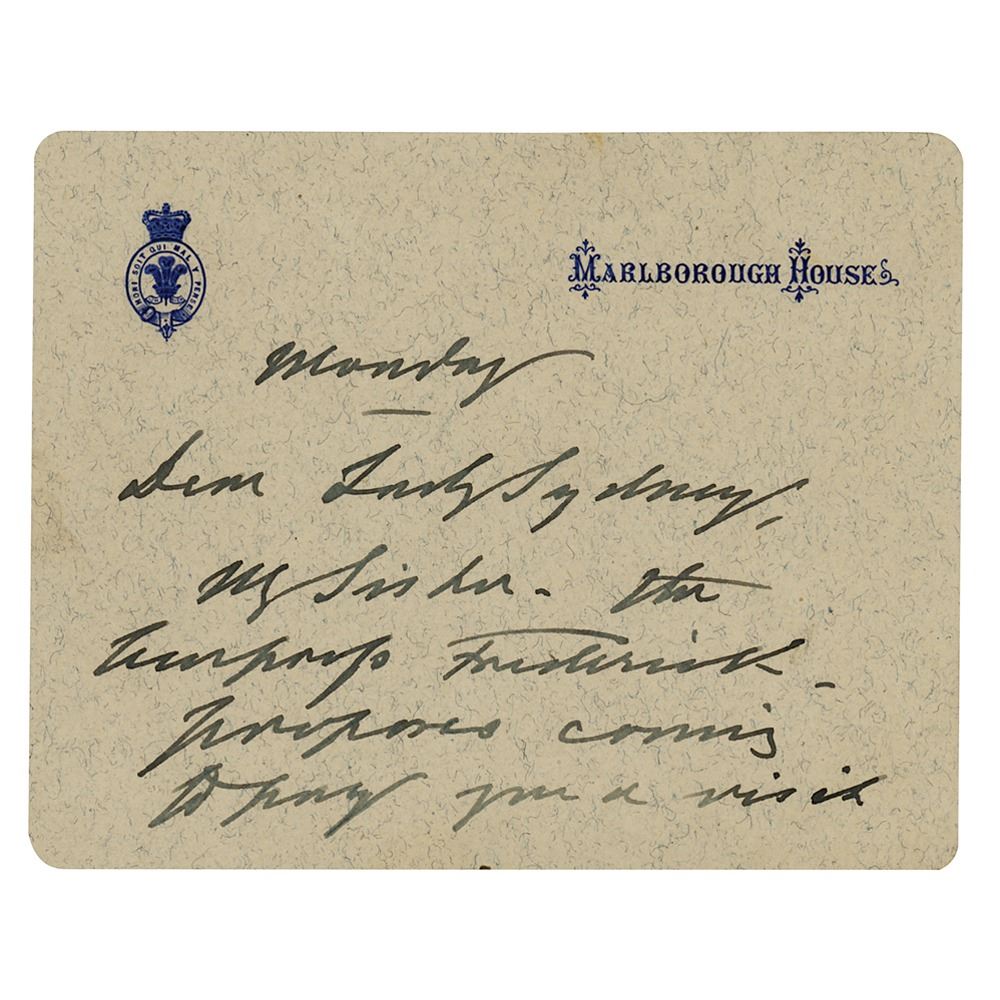 HONI SOIT QUI MAL Y PENSE
MARLBOROUGH HOUSE
Monday
Dear Lady Sydney,
My Sister - the
Empress Frederick -
proposes coming
to pay you a visit